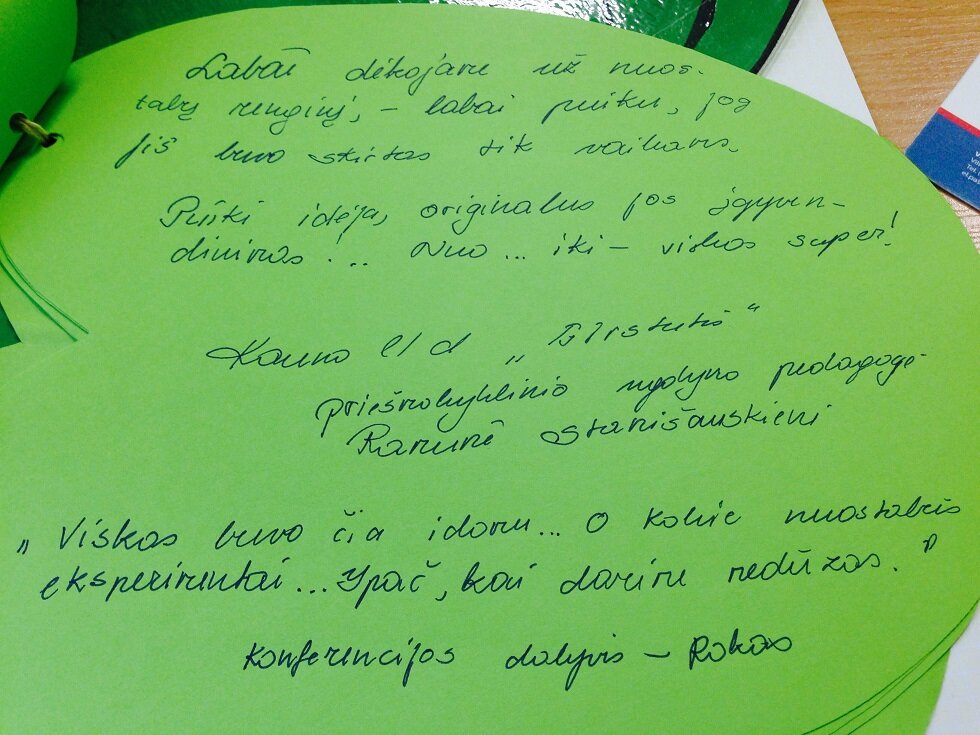 Labai dėkojame už nuos-
tabų renginį, – labai puiku, jog
jis buvo skirtas tik vaikams.
Puiki idėja, originalus jos įgyven-
dinimas!.. Nuo... iki – viskas super!
Kauno l/d „Girstutis“
priešmokyklinio ugdymo pedagogė
Ramunė Stanišauskienė
„Viskas buvo čia įdomu... O kokie nuostabūs
eksperimentai... Ypač, kai darėme medūzas.“
Konferencijos dalyvis – Rokas